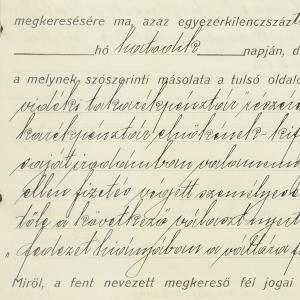 megkeresésére ma, azaz egyezerkilenczszáz
hó hatodik napján, d
a melynek szószerinti másolata a tulsó oldalo
vidéki takarékpénztár részére
karékpénztár elnökének - kif
saját irodámban valamenn
ellen fizetés végett személyese
tőle a következő választ nyert
„fedezet hiányában a váltóra f
Miről, a fent nevezett megkereső fél jogai